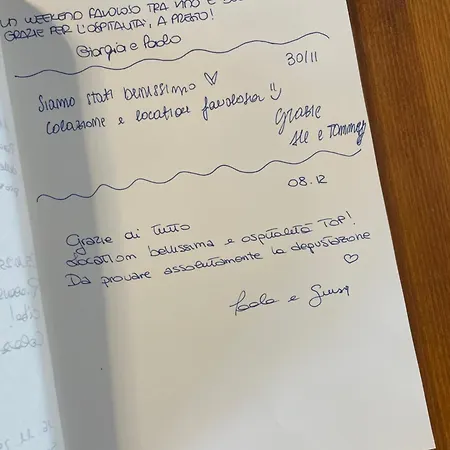 UN WEEKEND FAVOLOSO TRA VINO E
GRAZIE PER L'OSPITALITÀ, A PRESTO!
Giorgia e Paolo
30/11
Siamo stati benissimo ♡
colazione e location favolosa :)
Grazie
Ale e Tommy
08.12
Grazie di Tutto
Location bellissima e ospitalità TOP!
Da provare assolutamente la degustazione
♡
Paola e